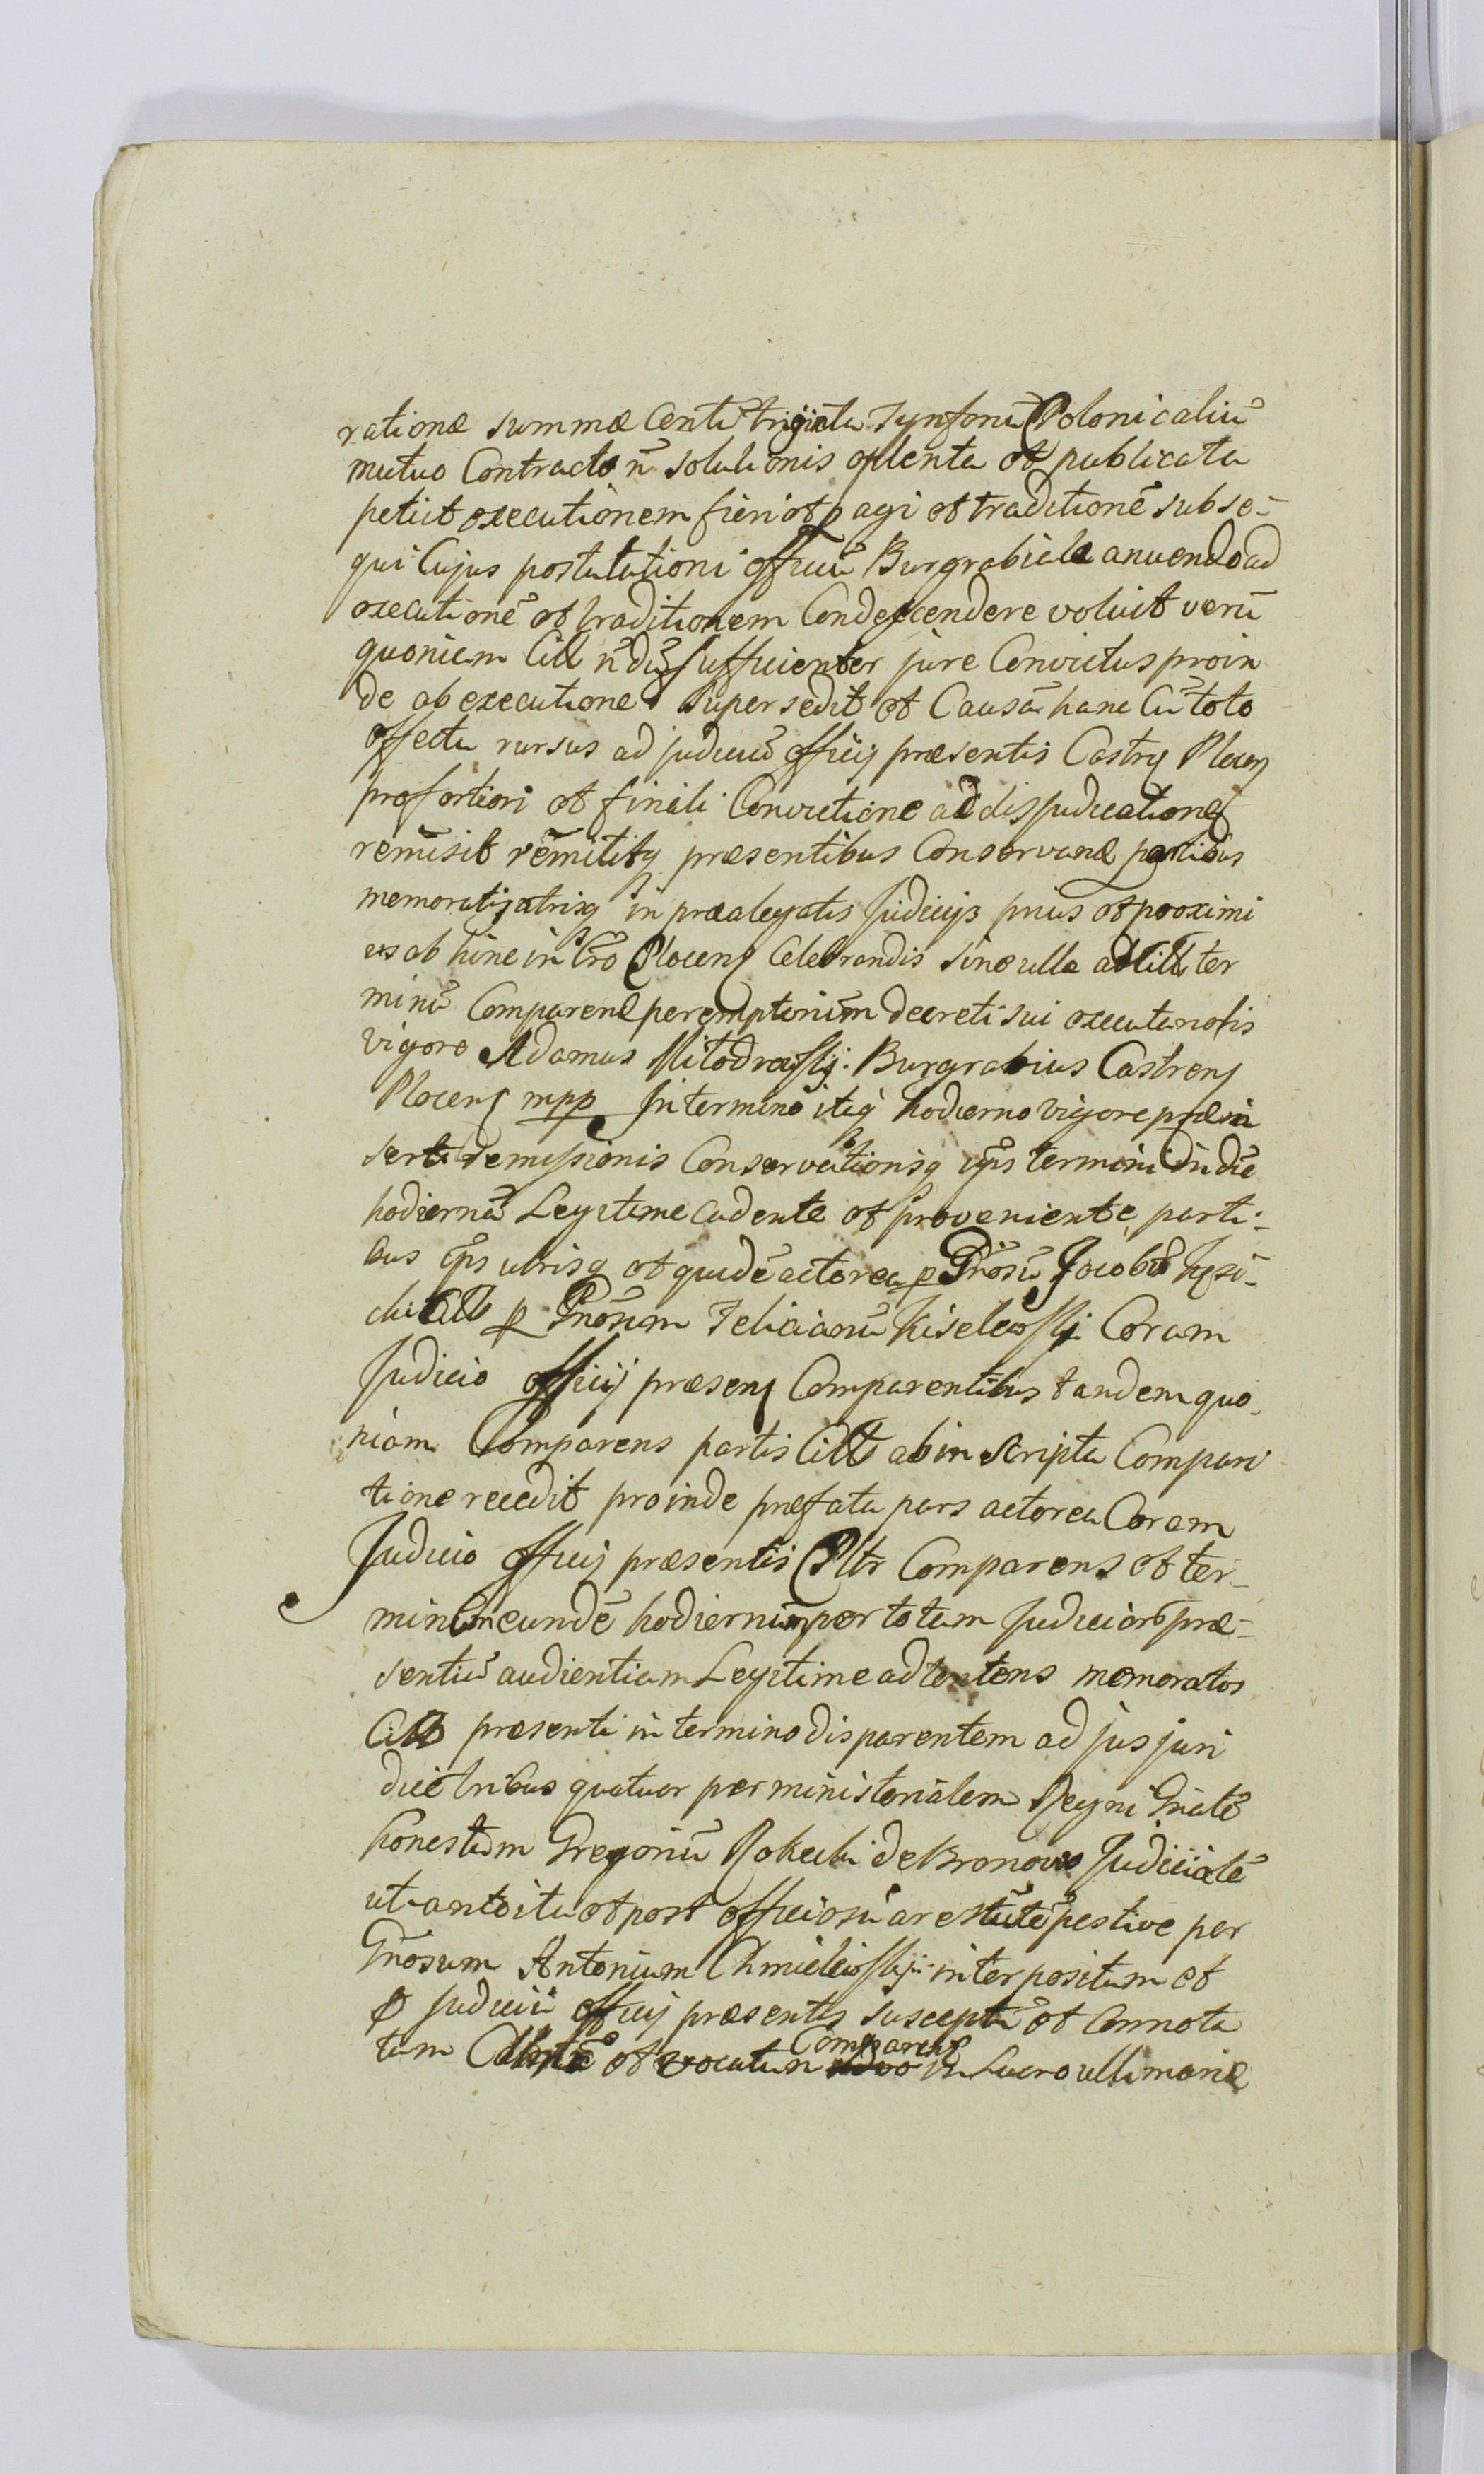 rationæ summæ Centũ triginta Tynforũ Polonicaliũ
mutuo Contracto ñ solutionis oblenta et publicata
petiit executionem fieri et pagi et traditionẽ subse-
qui Cujus postulationi officiũ Burgrabiale anuendo ad
executionẽ et traditionem Condescendere voluit verũ
quoniam Citt ñ dũ sufficienter jure Convictus proin
de ab executione supersedit et Causã hanc Cũ toto
effectu rursus ad judiciũ officij præsentis Castrẽ Plocen
pro fortiori et finali Convictione ad disjudicationẽ
remisit remititq præsentibus Conservanẽ partibus
memoratis utrisq in præalegatis Judicijs prius et proximi
us ab hinc in Cro Plocen Celebrandis sine ulla ad Citt ter
minũ Comparenẽ peremptoriũm decreti sui executionis
vigore Adamus Milodrowskj Burgrabius Castren
Plocen mpp In termino itaq hodierno vigore præin
serta remissionis Conservationisq ejus termini in diẽ
hodiernũ Legitime cadente et proveniente parti-
bus ips utrisq et quidẽ actorea p Gnosũ Jacobũ
Citt p Gnosum Felicianũ Kiselewskj Coram
Judicio officij præsen Comparentibus tandem quo-
niam Comparens partis Citt ab in scripta Compari
tione recedit proinde præfata pars actorea Coram
Judicio officij præsentis Pltr Comparens et ter-
minum eundẽ hodiernum per totam Judiciorũ præ-
sentiũ audientiam Legitime adtentens memoratos
Citt præsenti in termino disparentem ad jus juri
dicẽ tribus quatuor per ministerialem Regni Gnalẽ
honestum Gregoriũ Rokicki de Bronowo Judicialẽ
ut antoitu et post officiosũ arestũ tẽpestive per
Gnosum Antonium Chmielewskj interpositum et
p Judicii officij præsentis susceptũ et Connota
tum Citatũ et vocatum Comparenẽ in Lucro ultimariẽ